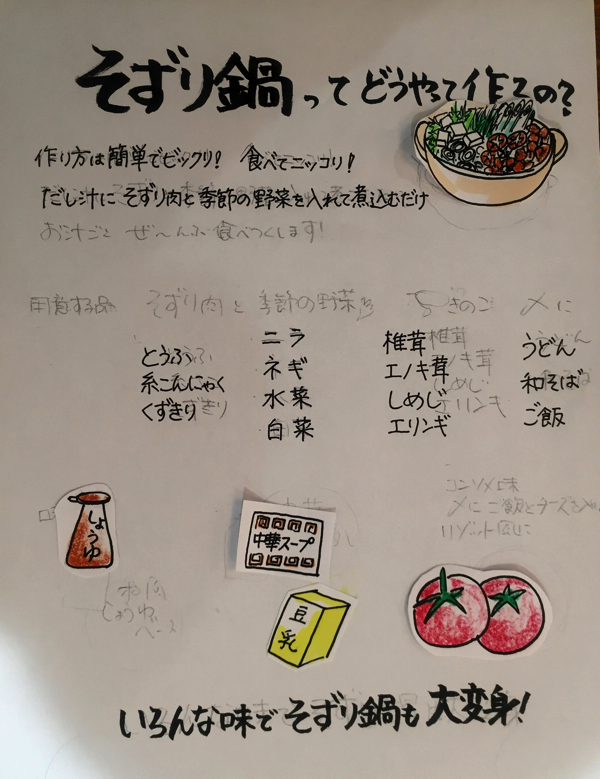 そずり鍋ってどうやって作るの?
作り方は簡単でビックリ! 食べてニッコリ!
だし汁に そずり肉と季節の野菜を入れて煮込むだけ
お汁ごと ぜ〜んぶ食べつくします!
用意する品 そずり肉と 季節の野菜 きのこ 〆に
とうふ
糸こんにゃく
くずきり
ニラ
ネギ
水菜
白菜
椎茸
エノキ茸
しめじ
エリンギ
うどん
和そば
ご飯
コンソメ味
〆にご飯とチーズを入れ
リゾット風に
しょうゆ
中華スープ
豆乳
しょうゆ
ベース
いろんな味でそずり鍋も大変身!